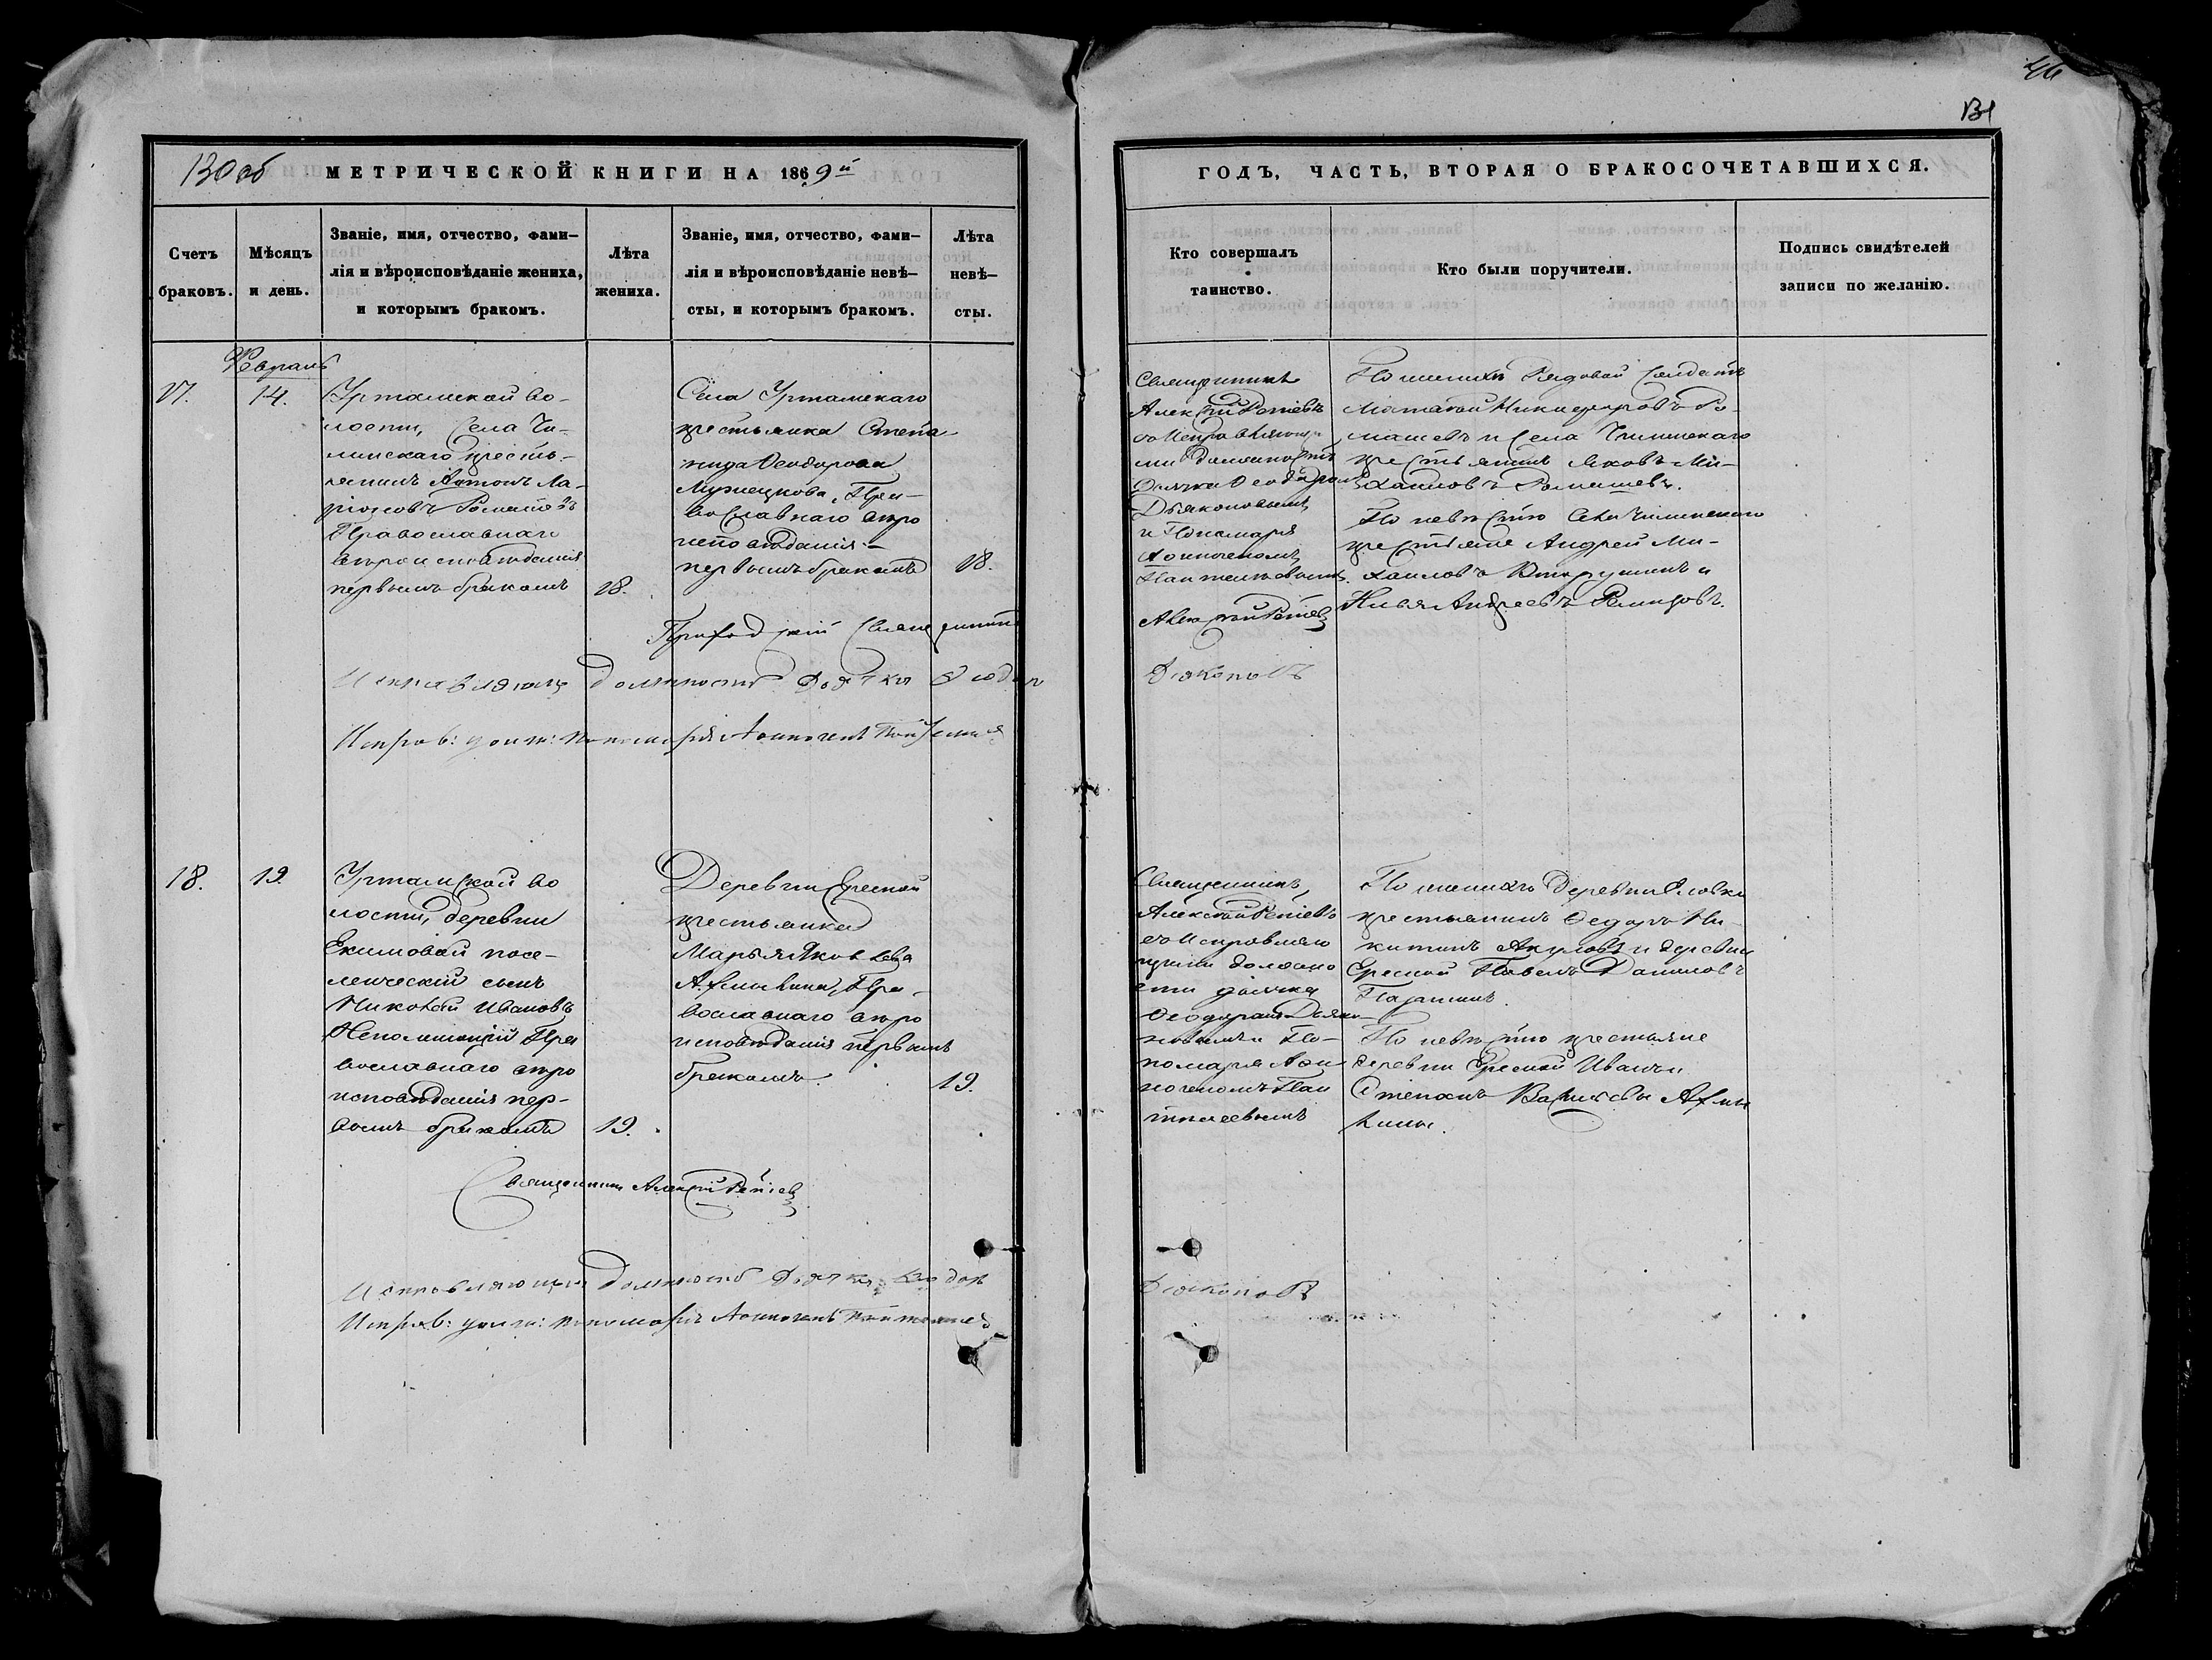 46
131
130 об
МЕТРИЧЕСКОЙ КНИГИ НА 1869й
ГОДЪ, ЧАСТЬ, ВТОРАЯ О БРАКОСОЧЕТАВШИХСЯ.
Счетъ
браковъ.
Мѣсяцъ
и день.
Званіе, имя, отчество, фами-
лія и вѣроисповѣданіе жениха,
и которымъ бракомъ.
Лѣта
жениха.
Званіе, имя, отчество, фами-
лія и вѣроисповѣданіе невѣ-
сты, и которымъ бракомъ.
Лѣта
невѣ-
сты.
Кто совершалъ
таинство.
Кто были поручители.
Подпись свидѣтелей
записи по желанію.
Февраль
17.
14.
Уртамской во-
лости, Села Чи-
линскаго кресть-
янинъ Антонъ Ла-
ріоновъ
Православнаго
вѣроисповѣданія
первымъ бракомъ
18.
Села Уртамскаго
крестьянка Степа-
нида Феодорова
Мужецкова, Пра-
вославнаго вѣро
исповѣданія
первымъ бракомъ
18.
Священникъ
Алексѣй
съ Исправляющи
ми должность
Дьячка Феодоромъ
Дьяконовымъ
и Пономаря
Пантелѣевымъ.
По женихѣ Рядовой Солдатъ
Никифоровъ Ро-
машевъ и Села Чилинскаго
крестьянинъ Яковъ Ми-
хаиловъ Ромашевъ.
По невѣстѣ Села Чилинскаго
крестьяне Андрей Ми-
хаиловъ и
Илья Андреевъ
Приходскій Священникъ
Алексѣй
Исправляющ должность Дьячка Феодоръ
Дьяконовъ
Исправ: долж: пономаря
18.
19.
Уртамской во
лости, деревни
Екимовой посе-
ленческій сынъ
Николай Ивановъ
Непомнющій Пра
вославнаго вѣро
исповѣданія пер-
вымъ бракомъ
19.
Деревни Ерской
крестьянка
Марья Яковлева
Православнаго вѣро
исповѣданія первымъ
бракомъ.
19.
Священникъ
Алексѣй
съ Исправляю
щими должно
сти дьячка
Феодоромъ Дьяко-
новымъ и По-
номаря
Пан
телеевымъ
По женихѣ Деревни Еловки
крестьянинъ Федоръ Ни-
китинъ Акуловъ и деревни
Ерской Павелъ Даниловъ
По невѣстѣ крестьяне
деревни Ерской Иванъ и
Степанъ Васильевы
Священникъ Алексѣй
Исправляющій должность Дьячка Феодоръ
Дьяконовъ
Исправ: долж: пономаря